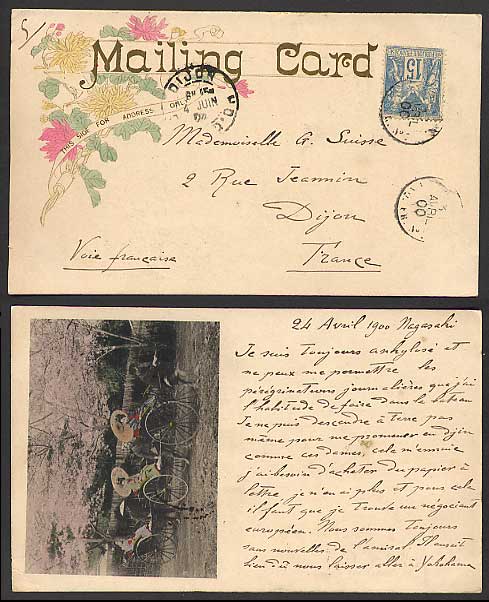 5/
Mailing Card
THIS SIDE FOR ADDRESS ONLY
DIJON
4 JUIN
15
AVRIL
00
Mademoiselle G. Suisse
2 Rue Jeannin
Dijon
France
Voie française
24 Avril 1900 Nagasaki
Je suis toujours ankylosé et
ne peux me permettre les
pérégrinations journalières que j'ai
l'habitude de faire dans le bateau
Je ne puis descendre à terre pas
même pour me promener en djin
comme ces dames, cela m'ennuie
j'ai besoin d'acheter du papier à
lettre je n'en ai plus et pour cela
il faut que je trouve un négociant
européen. Nous sommes toujours
sans nouvelles de l'amiral Il aurait
bien dû nous laisser aller à Yokohama